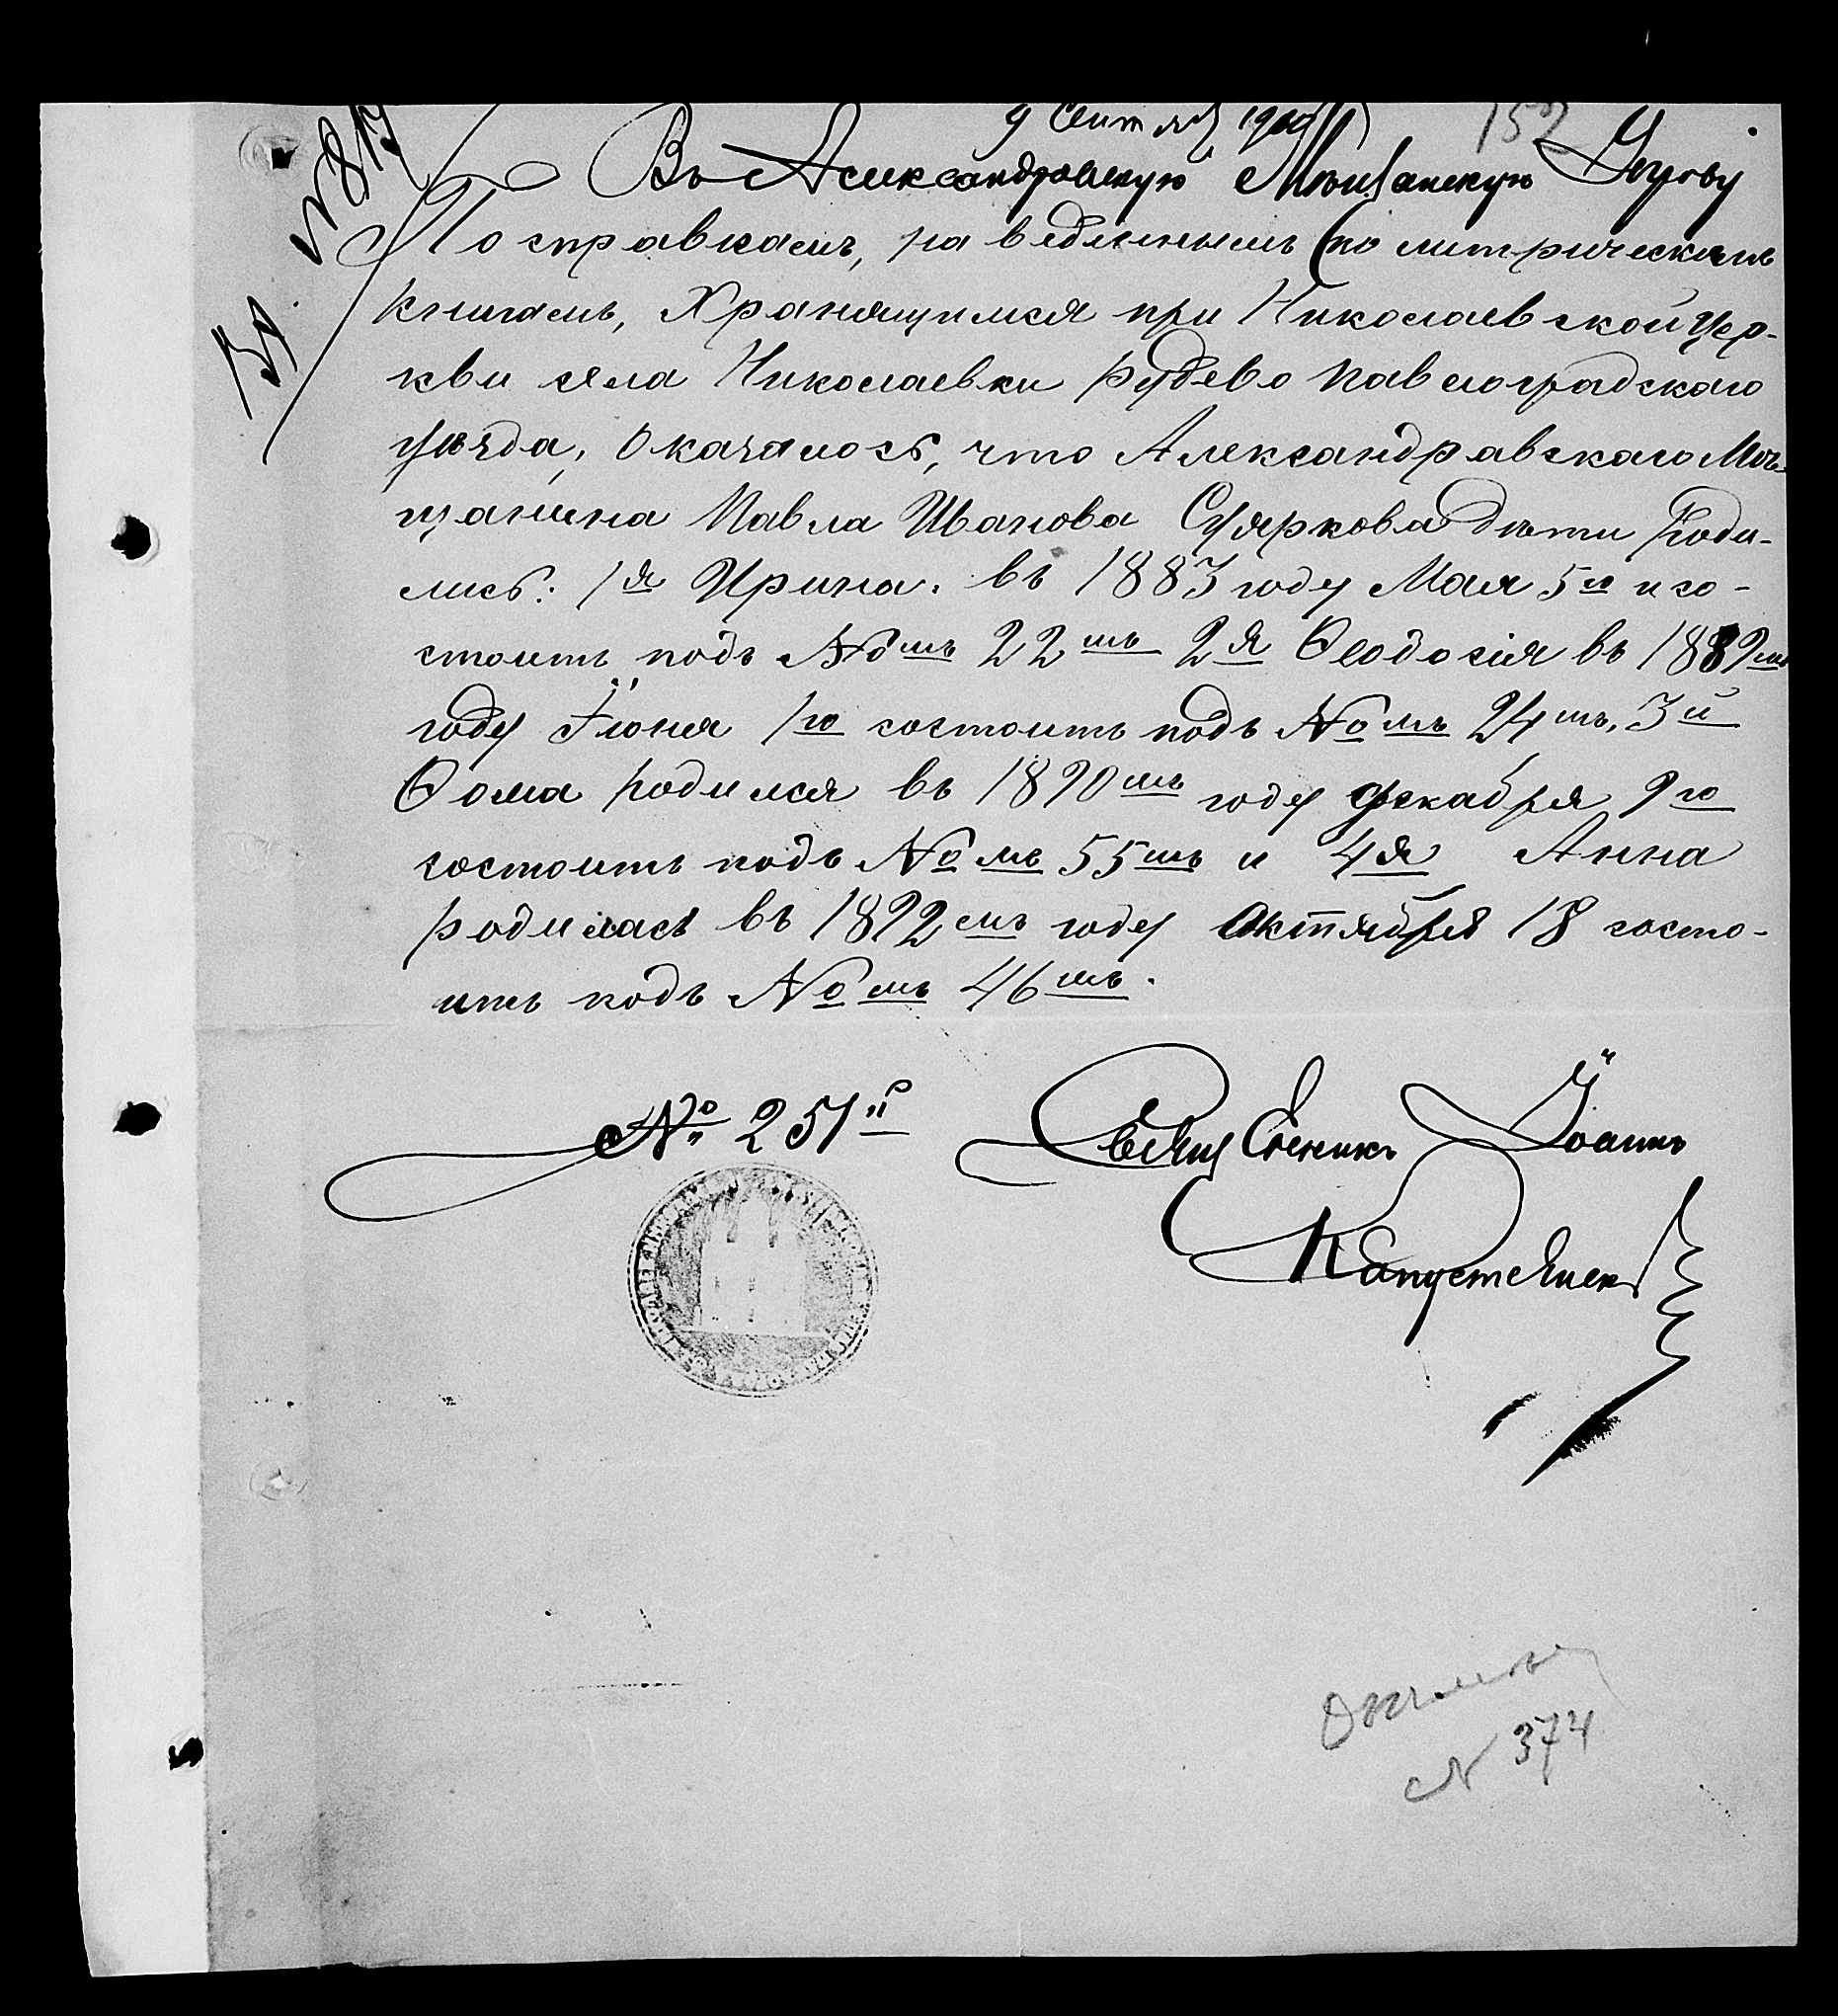 9 Сентяб 1900
152
№ 817
Въ Александровскую Мѣщанскую Управу
По справкамъ, на веденнымъ по митрическимъ
книгамъ, Хранящимся при Николаевской Цер-
кви села Николаевки Рудево Павлоградскаго
уѣзда, Оказалось, что Александравскаго Мѣ-
щанина Павла Иванова Суяркова дѣти Роди-
лись: 1я Ирина. въ 1883 году Мая 5го и со-
стоитъ подъ №омъ 22мъ 2я Ѳеодосія въ 1889мъ
году Іюня 1го состоитъ подъ №омъ 24мъ, 3й
Ѳома родился въ 1890мъ году Декабря 9го
состоитъ подъ №омъ 55мъ и 4я Анна
родилась въ 1892мъ году Октября 18 состо-
итъ подъ №омъ 46мъ.
№ 251й
Священникъ Іоаннъ
Капустянск
№ 374